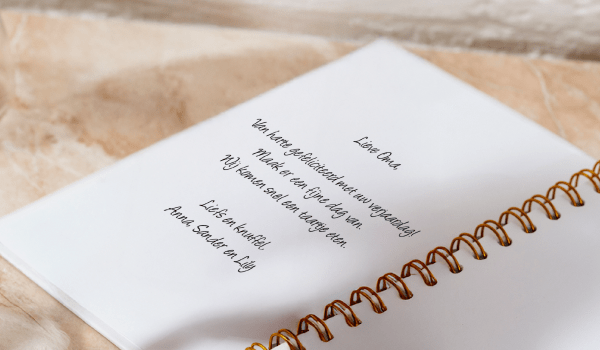 Lieve Oma,
Van harte gefeliciteerd met uw verjaardag!
Maak er een fijne dag van.
Wij komen snel een taartje eten.
Liefs en knuffel
Anna, Sander en Lily